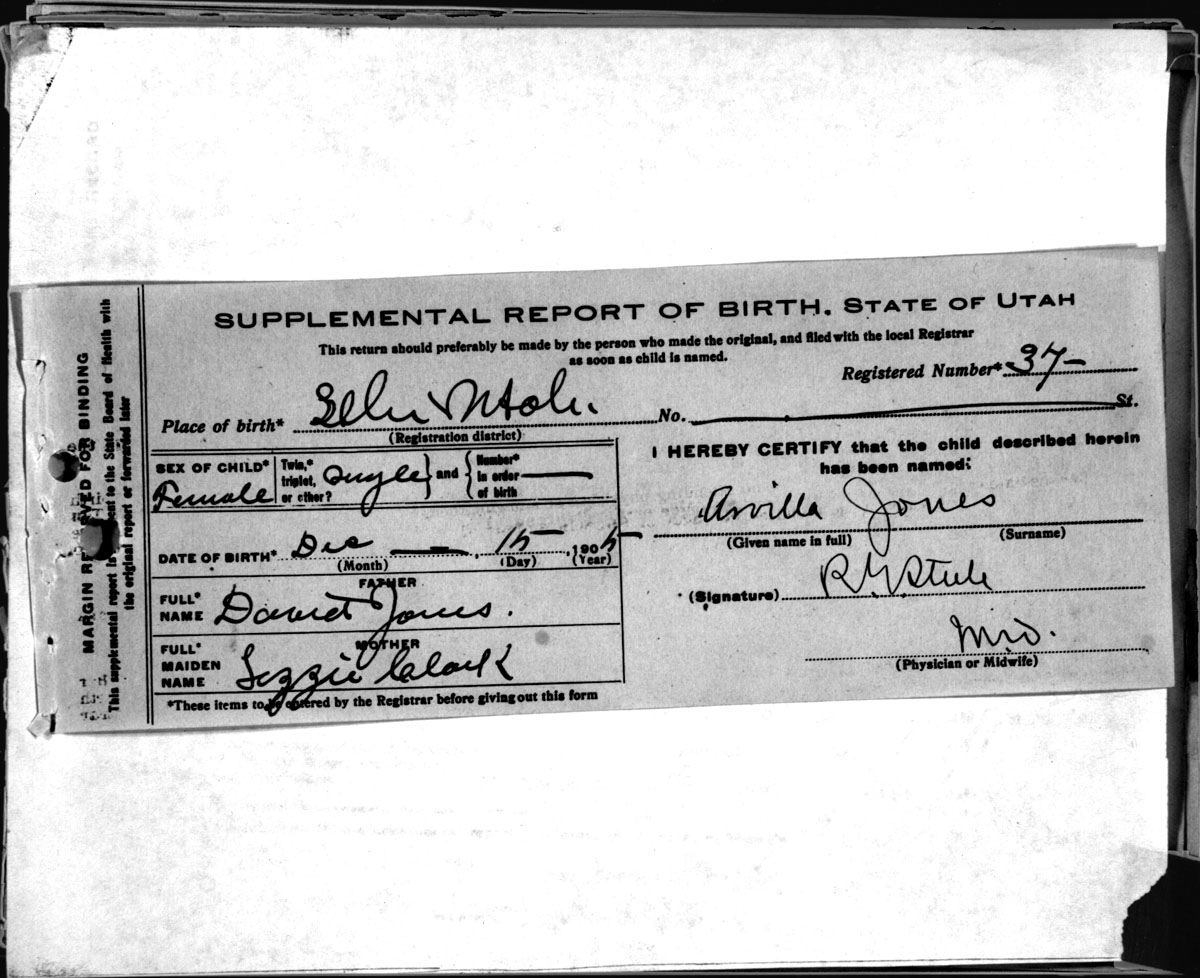 SUPPLEMENTAL REPORT OF BIRTH. STATE OF UTAH
This return should preferably be made by the person who made the original, and filed with the local Registrar
as soon as child is named.
Registered Number* 37-
Place of birth* No. St.
(Registration district)
SEX OF CHILD* Female
Twin,* triplet, or other? Single and
Number* in order of birth
DATE OF BIRTH* Dec 15 1905
(Month) (Day) (Year)
FATHER
FULL* NAME David Jones.
MOTHER
FULL* MAIDEN NAME Lizzie Clark
*These items to be entered by the Registrar before giving out this form
I HEREBY CERTIFY that the child described herein
has been named:
Arvilla Jones
(Given name in full) (Surname)
(Signature)
M.D.
(Physician or Midwife)
MARGIN RESERVED FOR BINDING
This supplemental report is sent to the State Board of Health with
the original report or forwarded later